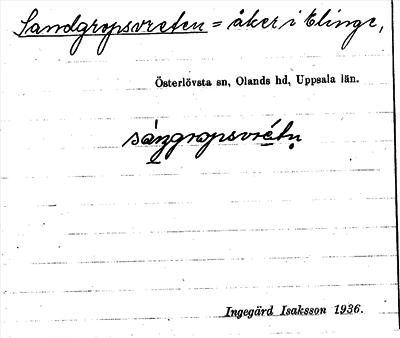 Sandgropsvreten = åker i Elinge,
Österlövsta sn, Olands hd, Uppsala län.
sángropsvrétn̥
Ingegärd Isaksson 1936.